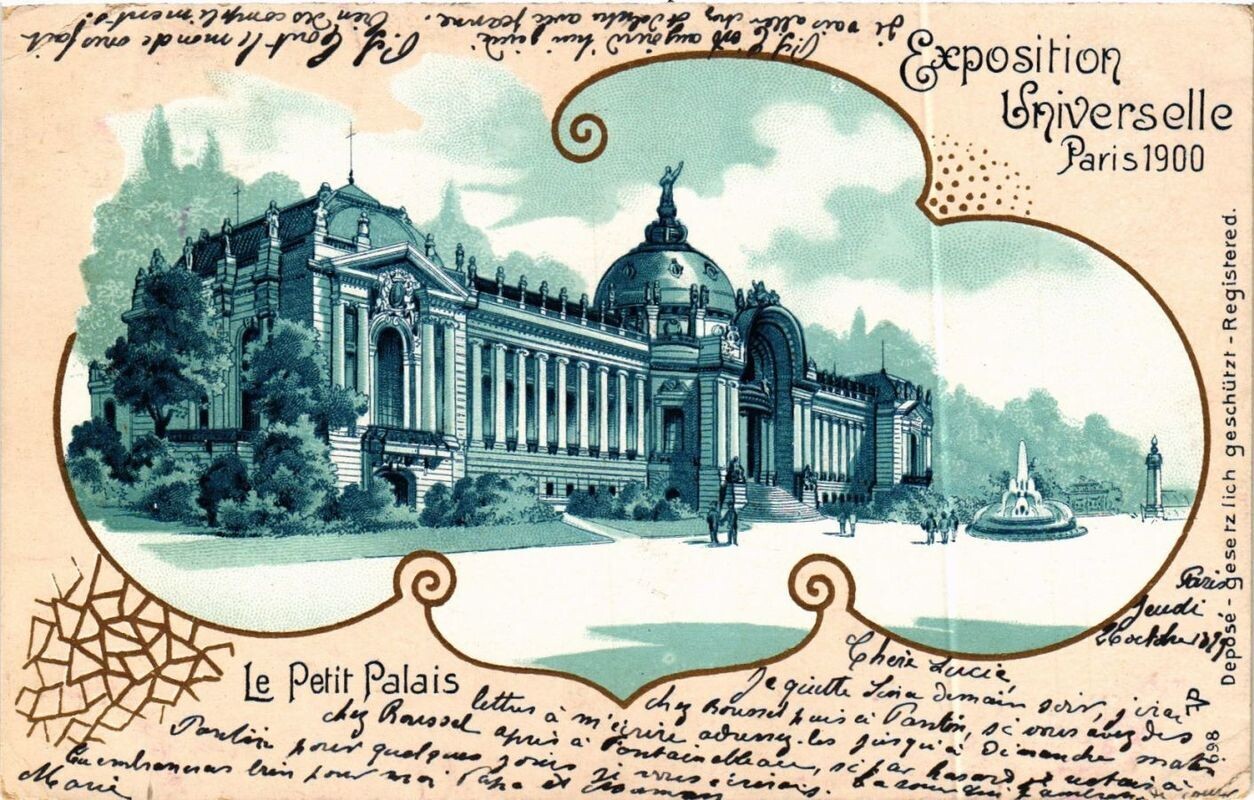 P.S. Tout le monde vous fait
bien des compliments!
P.S. C'est aujourd'hui jeudi
je vais aller chez avec Jeanne.
Exposition
Universelle
Paris 1900
Déposé - gesetzlich geschützt - Registered.
698
Paris
Jeudi
26 octobre
Chère Lucie
Je quitte demain soir, j'irai
chez Roussel puis à Pantin, si vous avez des
lettres à m'écrire adressez-les jusqu'à Dimanche matin
chez Roussel après à Fontainebleau, si par hasard je restais à
Pantin pour quelques jours je vous écrirais.
Embrassez bien pour moi Papa et Maman
Marie
Le Petit Palais